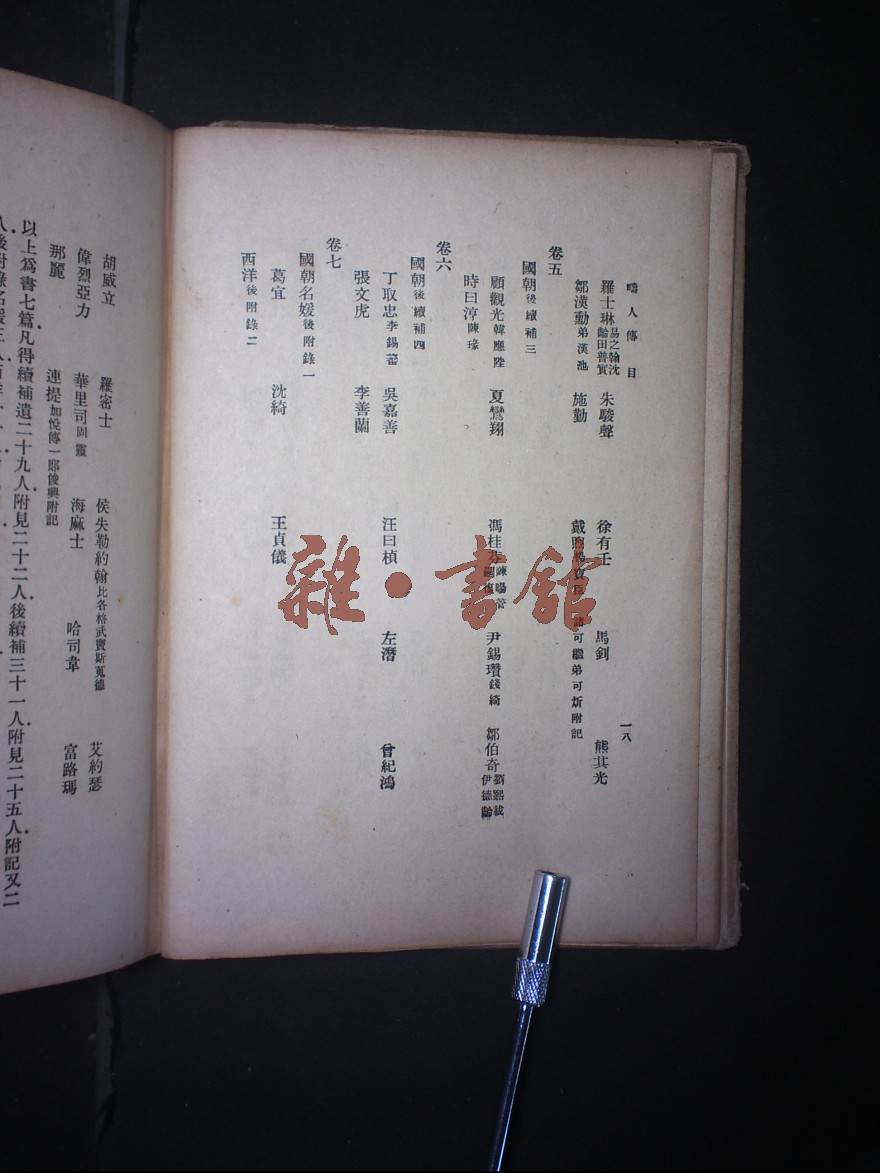 疇人傳 目 一八
羅士琳 易之瀚 沈齡 田普實 朱駿聲 徐有壬 馬釗 熊其光
鄒漢勳 弟漢池 施勤 戴煦 可繼弟可炘附記
卷五
國朝 後續補三
顧觀光 韓應陛 夏鸞翔 馮桂芬 陳暘 尹錫瓚 錢綺 鄒伯奇 劉熙載 伊德齡
時曰淳 陳瑑
卷六
國朝 後續補四
丁取忠 李錫蕃 吳嘉善 汪曰楨 左潛 曾紀鴻
張文虎 李善蘭
卷七
國朝名媛 後附錄一
葛宜 沈綺 王貞儀
西洋 後附錄二
胡威立 羅密士 侯失勒約翰 比各格武竇斯蒐德 艾約瑟
偉烈亞力 華里司 固靈 海麻士 哈司韋 富路瑪
那麗 連提 加悅傳一郎俊興附記
以上爲書七篇凡得續補遺二十九人附見二十二人後續補三十一人附見二十五人附記又二
人後附錄名媛三人
雜·書館